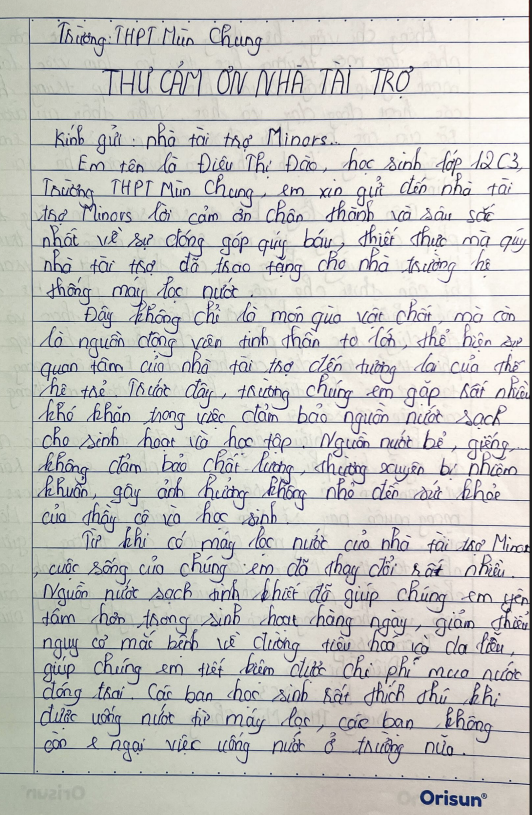 Trường: THPT Mùn Chung
THƯ CẢM ƠN NHÀ TÀI TRỢ
Kính gửi: nhà tài trợ Minors...
Em tên là Điêu Thị Đào, học sinh lớp 12C3,
Trường THPT Mùn Chung, em xin gửi đến nhà tài
trợ Minors lời cảm ơn chân thành và sâu sắc
nhất về sự đóng góp quý báu, thiết thực mà quý
nhà tài trợ đã trao tặng cho nhà trường hệ
thống máy lọc nước
Đây không chỉ là món quà vật chất mà còn
là nguồn động viên tinh thần to lớn, thể hiện sự
quan tâm của nhà tài trợ đến tương lai của thế
hệ trẻ. Trước đây, trường chúng em gặp rất nhiều
khó khăn trong việc đảm bảo nguồn nước sạch
cho sinh hoạt và học tập. Nguồn nước bể, giếng...
không đảm bảo chất lượng, thường xuyên bị nhiễm
khuẩn, gây ảnh hưởng không nhỏ đến sức khỏe
của thầy cô và học sinh.
Từ khi có máy lọc nước của nhà tài trợ Minors
, cuộc sống của chúng em đã thay đổi rất nhiều.
Nguồn nước sạch tinh khiết đã giúp chúng em yên
tâm hơn trong sinh hoạt hàng ngày, giảm thiểu
nguy cơ mắc bệnh về đường tiêu hóa và da liễu,
giúp chúng em tiết kiệm được chi phí mua nước
đóng chai. Các bạn học sinh rất thích thú khi
được uống nước từ máy lọc, các bạn không
còn e ngại việc uống nước ở trường nữa.
Orisun®